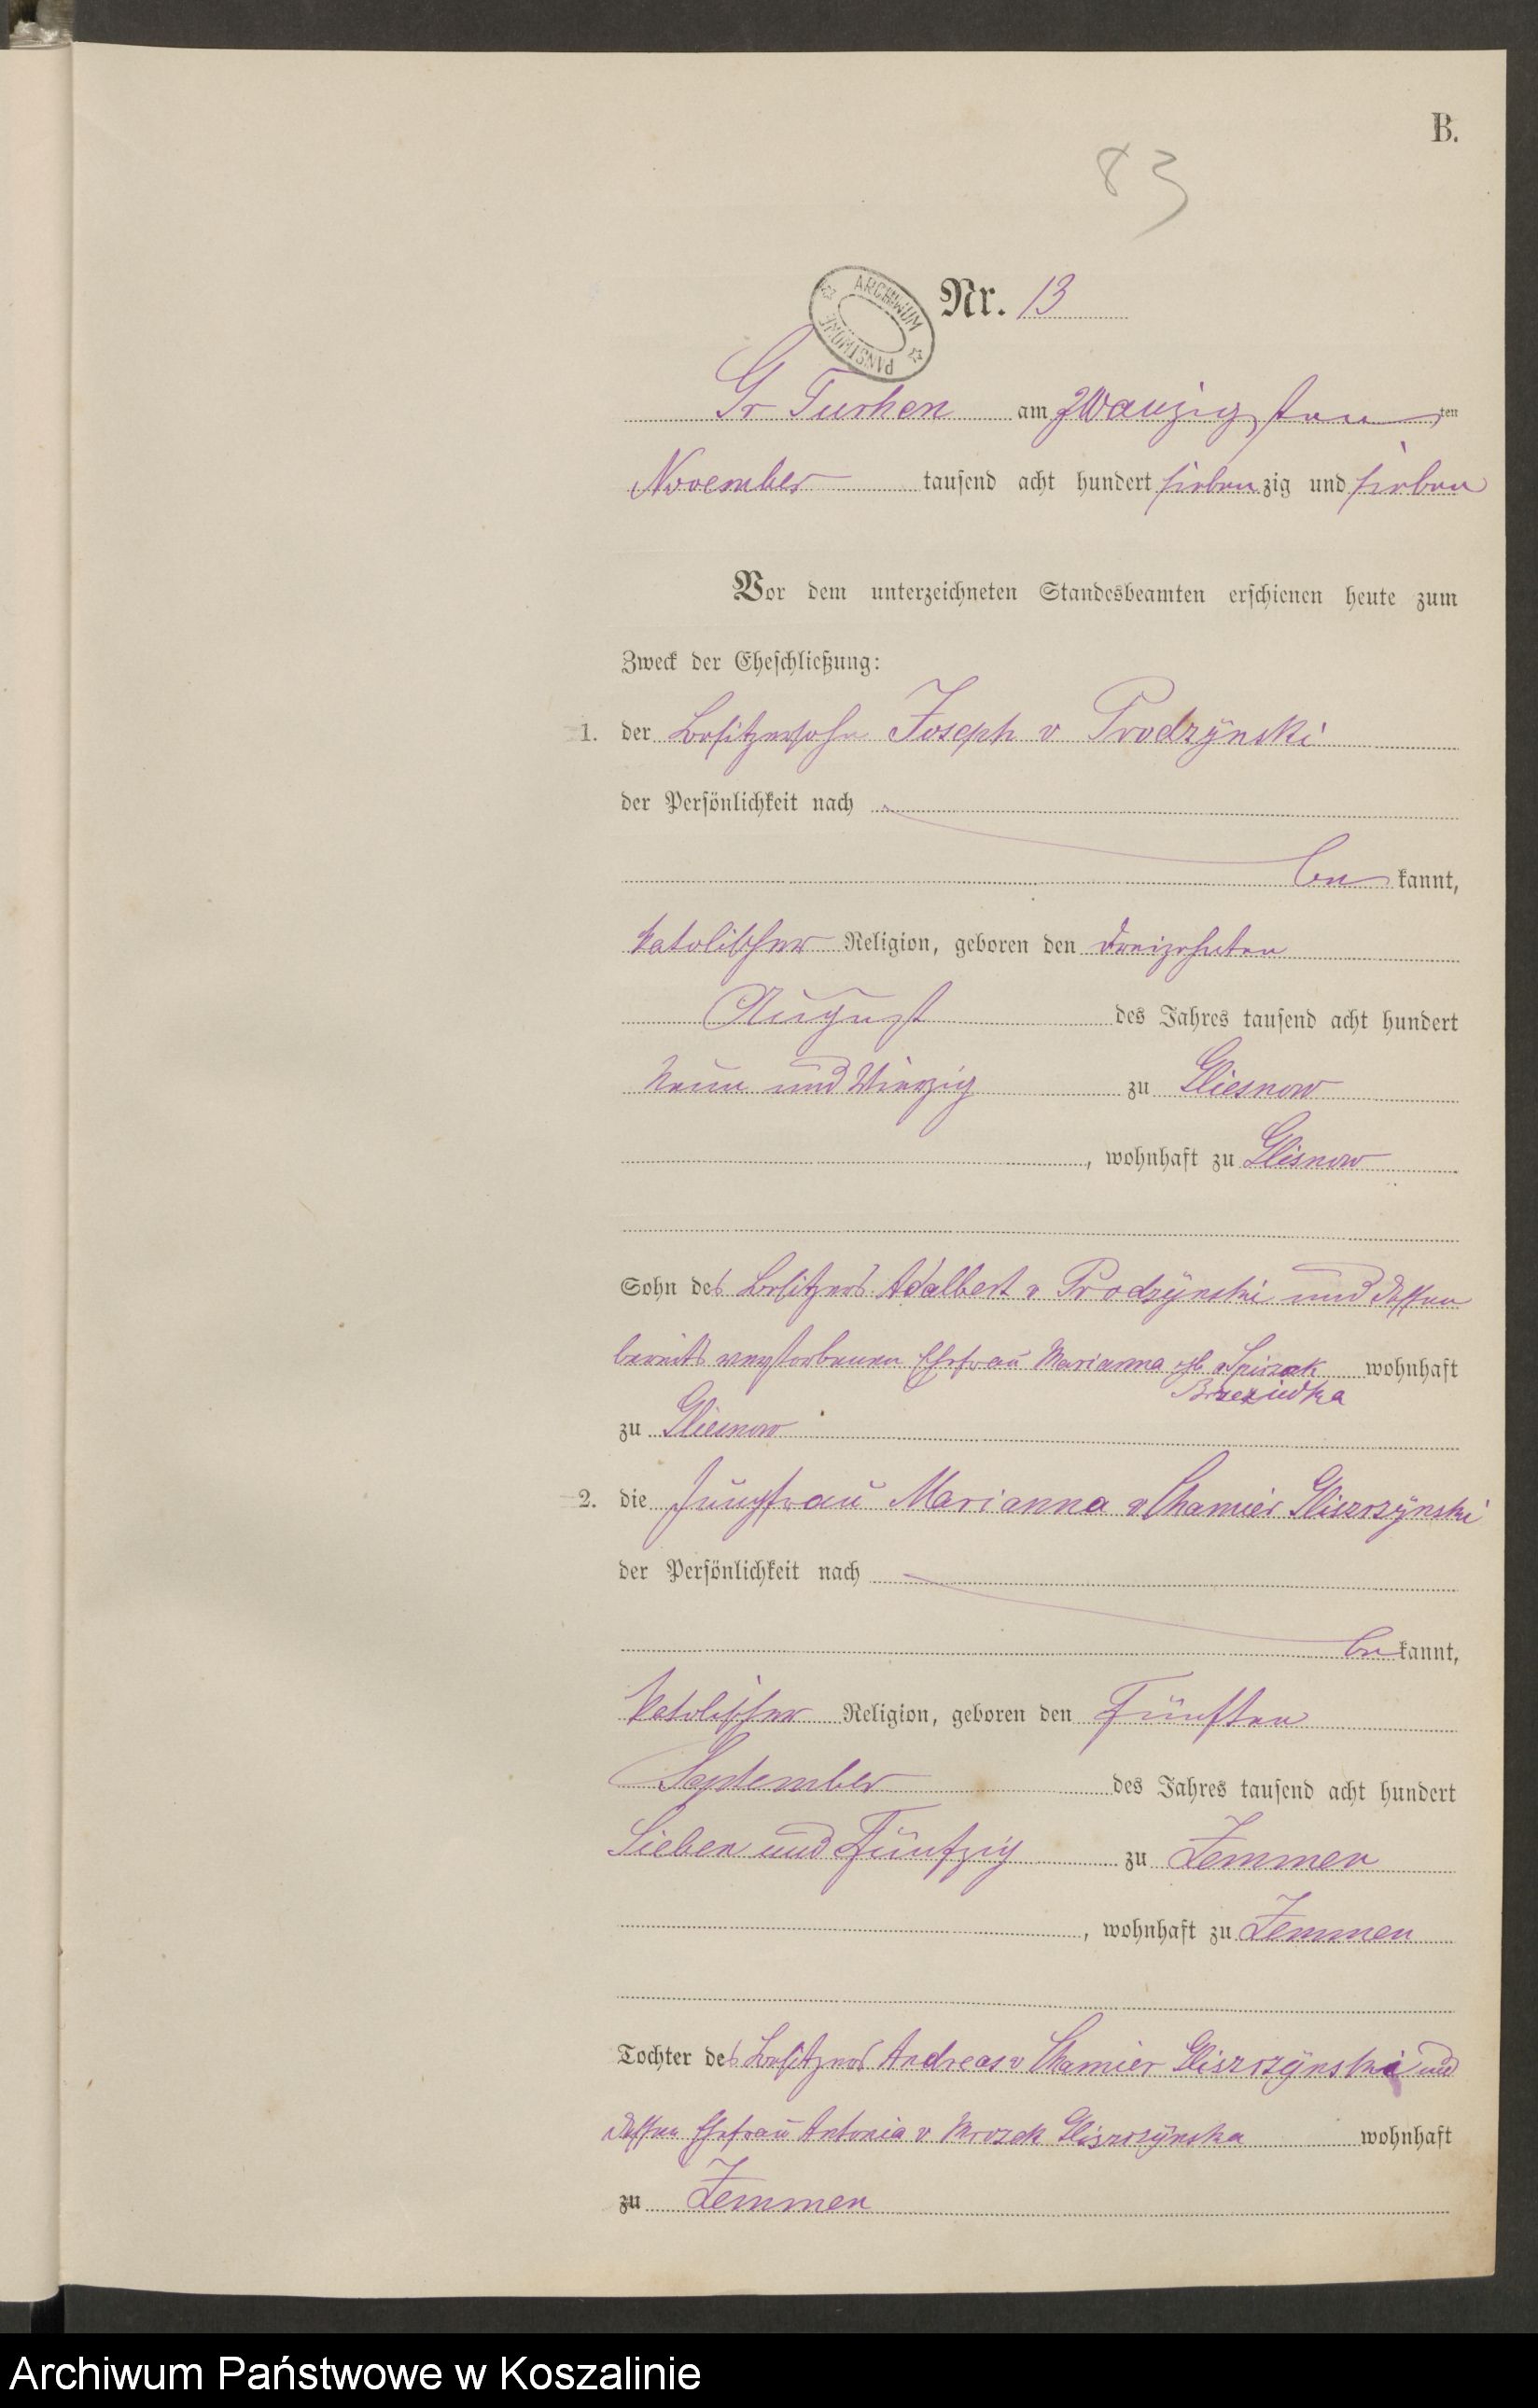 B.
83
ARCHIWUM PAŃSTWOWE
Nr. 13
Gr Tuchen am zwanzigsten ten
November tausend acht hundert siebenzig und sieben
Vor dem unterzeichneten Standesbeamten erschienen heute zum
Zweck der Eheschließung:
1. der Besitzersohn Joseph v Prodzÿnski
der Persönlichkeit nach
be kannt,
katolischer Religion, geboren den dreizehnten
August des Jahres tausend acht hundert
neun und Vierzig zu Gliesnow
, wohnhaft zu Glisnow
Sohn des Besitzers Adalbert v Prodzÿnski und dessen
bereits verstorbenen Ehefrau Marianna geb v Spiczak wohnhaft
Brzezinska
zu Gliesnow
2. die Jungfrau Marianna v Chamier Gliszczÿnski
der Persönlichkeit nach
be kannt,
katolischer Religion, geboren den Fünften
September des Jahres tausend acht hundert
Sieben und Fünfzig zu Zemmen
, wohnhaft zu Zemmen
Tochter des Besitzers Andreas v Chamier Gliszczÿnski und
dessen Ehefrau Antonia v Mrozek Gliszczÿnska wohnhaft
zu Zemmen
Archiwum Państwowe w Koszalinie